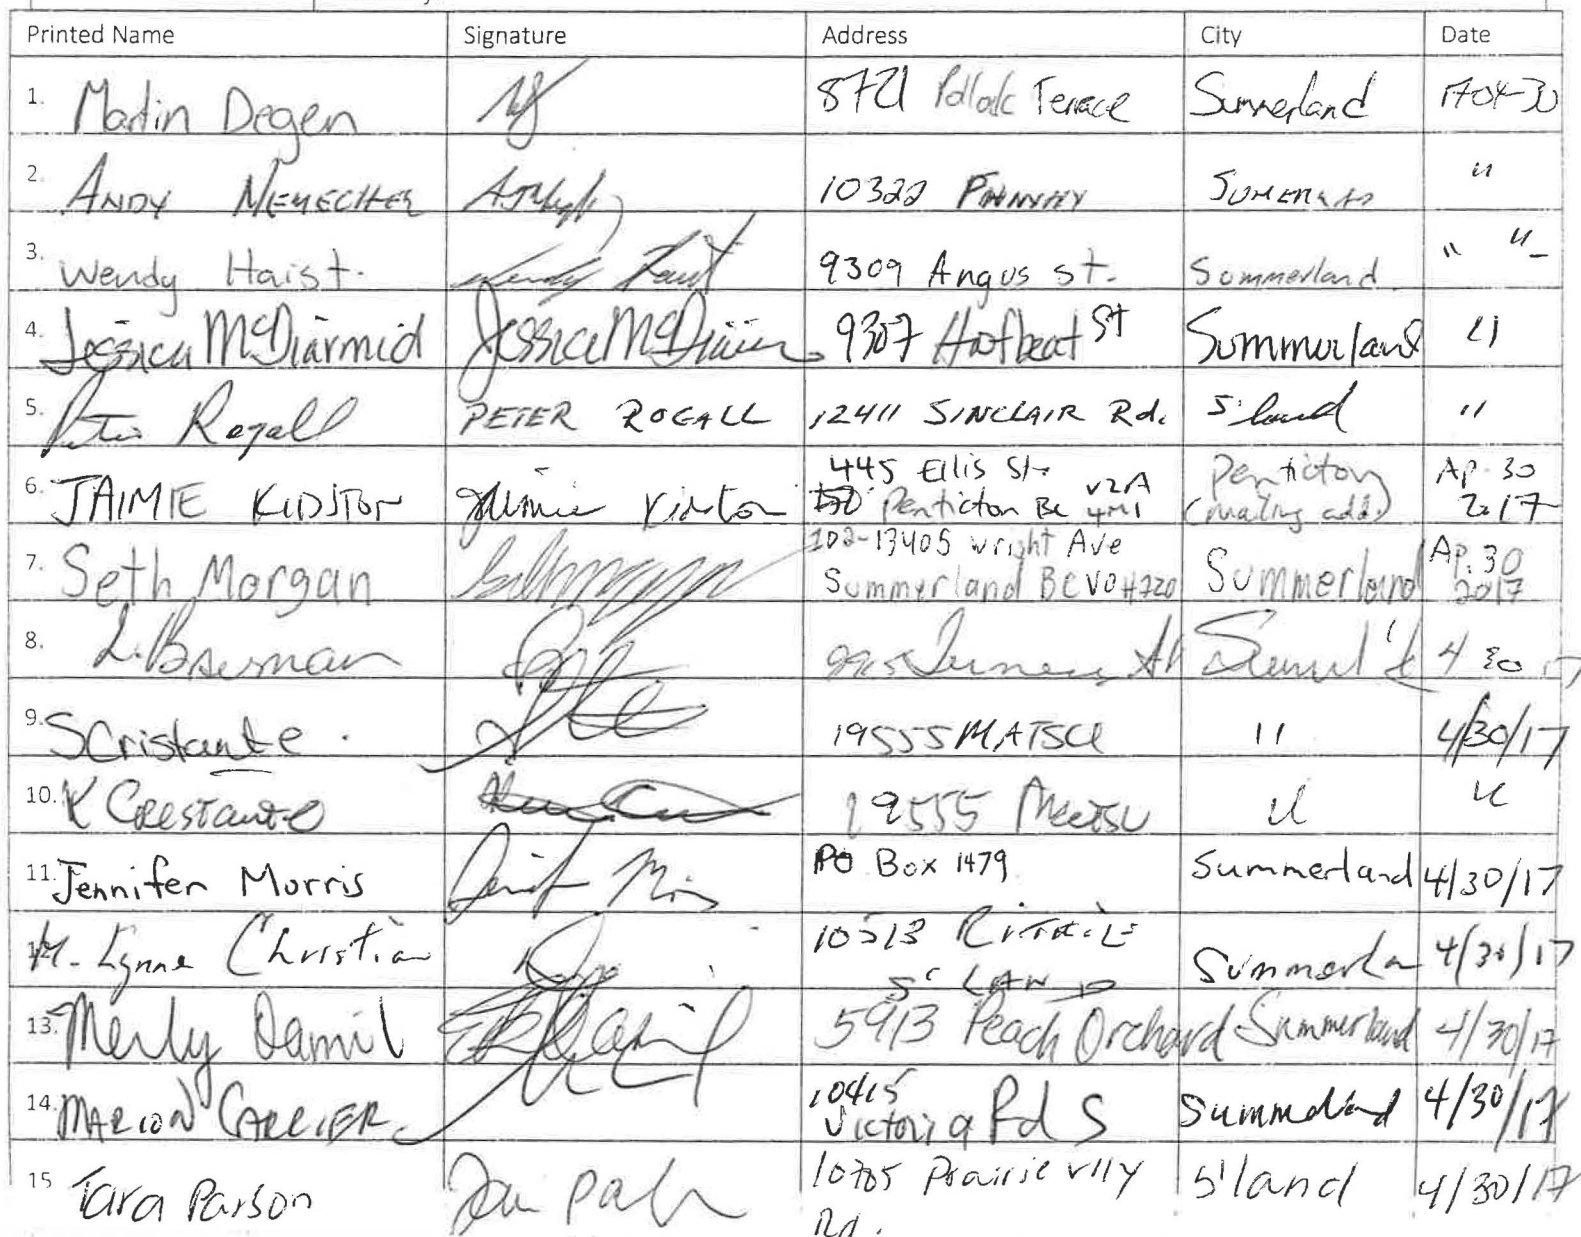 Printed Name Signature Address City Date
1. Martin Degen 8721 Terrace Summerland 1704-30
2. ANDY NEMECHEK 10322 "
3. Wendy Haist. Wendy Haist 9309 Angus St. Sommerland " "
4. Jessica McDiarmid Jessica McDiarm 9307 Hoofbeat St Summerland "
5. Peter Rogall PETER ROGALL 12411 SINCLAIR Rd. S'land "
6. JAIMIE KIDSTON Jaimie Kidston 445 Ellis St. Penticton BC V2A 4M1 Penticton (mailing add.) Ap. 30 2017
7. Seth Morgan 102-13405 Wright Ave Summerland BC V0H1Z0 Summerland Ap. 30 2017
8. L. 4 30 17
9. SCristante. 19555 MATSU 11 4/30/17
10. K CRESTANTE 19555 "
11. Jennifer Morris PO Box 1479 Summerland 4/30/17
M. Lynne Christian 10513 S'LAND Summerla 4/30/17
13. Merly Damil 5913 Peach Orchard Summerland 4/30/17
14. MARION CARRIER 10415 Victoria Rd S Summerland 4/30/17
15 Tara Parson 10705 Prairie Vlly Rd. S'land 4/30/17